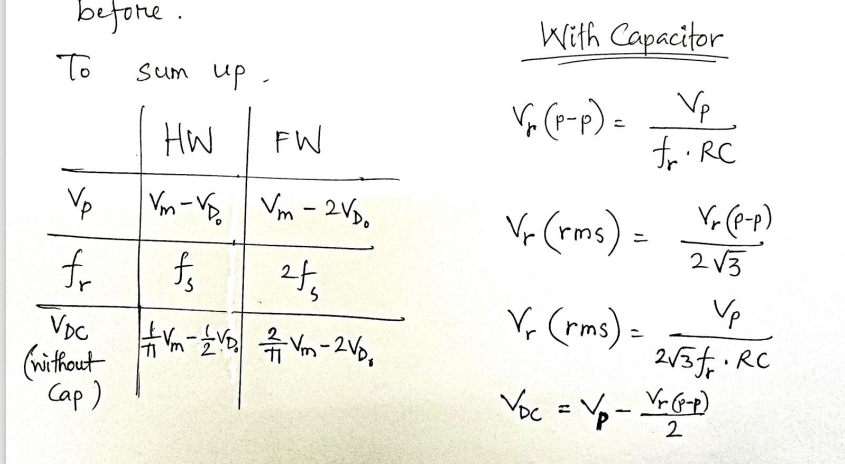 before.
To sum up.
HW FW
Vp Vm - VD₀ Vm - 2VD₀
fr fs 2fs
VDC (without Cap) 1/π Vm - 1/2 VD₀ 2/π Vm - 2VD₀
With Capacitor
Vr (p-p) = Vp / fr · RC
Vr (rms) = Vr (p-p) / 2√3
Vr (rms) = Vp / 2√3 fr · RC
VDC = Vp - Vr (p-p) / 2